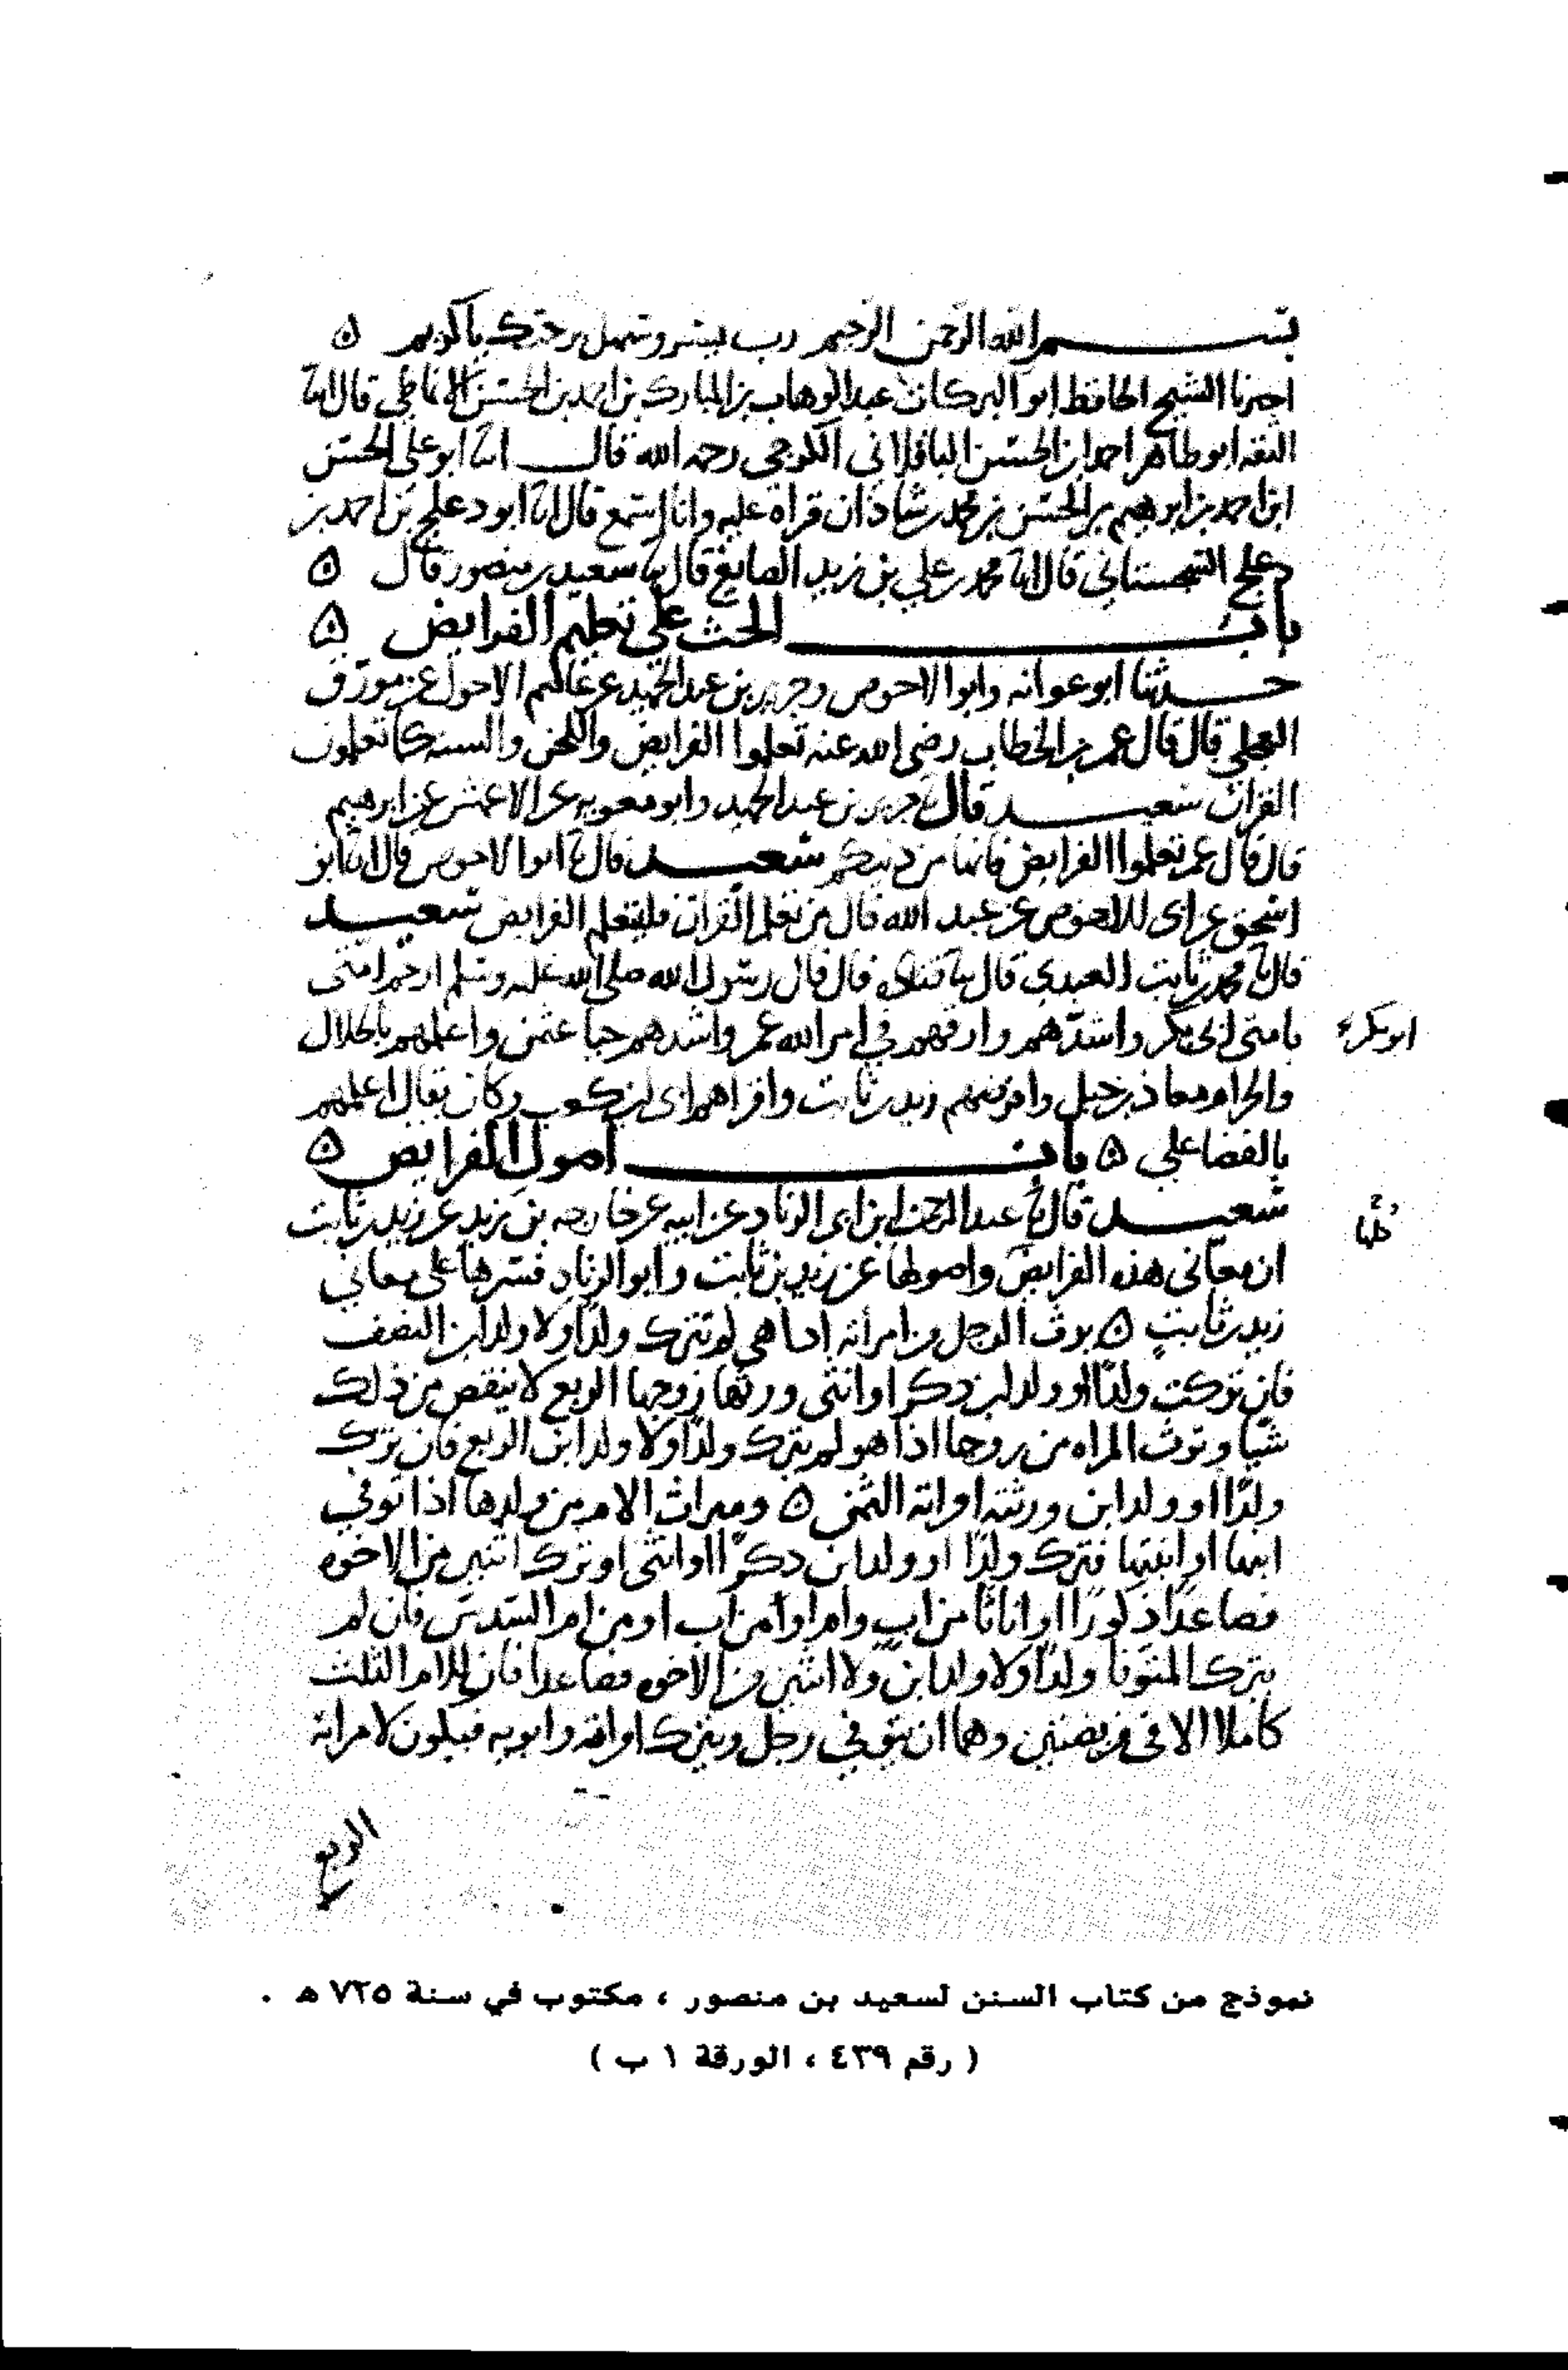 بسم الله الرحمن الرحيم رب يسر وسهل برحمتك يا كريم ه
اخبرنا الشيخ الحافظ ابو البركات عبد الوهاب بن المبارك بن احمد بن الحسن الانماطي قال انا
الثقه ابو طاهر احمد ابن الحسن الباقلاني الكرجي رحمه الله قال انا ابو علي الحسن
ابن احمد بن ابرهيم بن الحسن بن محمد بن شاذان قراة عليه وانا اسمع قال انا ابو دعلج بن احمد بن
دعلج السجستاني قال انا محمد بن علي بن زيد الصايغ قال نا سعيد بن منصور قال ه
باب الحث على تعليم الفرايض ه
حدثنا ابو عوانه وابو الاحوص وجرير بن عبد الحميد عن عاصم الاحول عن مورق
العجلي قال قال عمر بن الخطاب رضى الله عنه تعلموا الفرايض واللحن والسنه كما تعلمون
القران سعيد قال نا جرير بن عبد الحميد وابو معويه عن الاعمش عن ابرهيم
قال قال عمر تعلموا الفرايض فانها من دينكم سعيد قال نا ابو الاحوص قال انا ابو
اسحق عن ابي الاحوص عن عبد الله قال من تعلم القران فليتعلم الفرايض سعيد
قال نا محمد بن ثابت العبدي قال نا قتادة قال قال رسول الله صلى الله عليه وسلم ارحم امتى
بامتى ابو بكر واشدهم وارقهم في امر الله عمر واشدهم حيا عثمن واعلمهم بالحلال
ابو بكر
والحرام معاذ بن جبل وافرضهم زيد بن ثابت واقراهم ابى بن كعب وكان يقال اعلمهم
بالقضا علي ه باب اصول الفرايض ه
سعيد قال نا عبد الرحمن ابن ابى الزناد عن ابيه عن خارجه بن زيد عن زيد بن ثابت
ان معاني هذه الفرايض واصولها عن زيد بن ثابت وابو الزناد فسرها على معاني
زيد بن ثابت ه يرث الرجل من امراته اذا هي لم تترك ولدا ولا ولد ابن النصف
فان تركت ولدا او ولد ابن ذكرا او انثى ورثها زوجها الربع لا ينقص من ذلك
شيا وترث المراه من زوجها اذا هو لم يترك ولدا ولا ولد ابن الربع فان ترك
ولدا او ولد ابن ورثته امراته الثمن ه وميراث الام من ولدها اذا توفي
ابنها او ابنتها فترك ولدا او ولد ابن ذكرا او انثى او ترك اثنين من الاخوه
فصاعدا ذكورا او اناثا من اب وام او من اب او من ام السدس فان لم
يترك المتوفا ولدا ولا ولد ابن ولا اثنين من الاخوه فصاعدا فان للام الثلث
كاملا الا في فريضتين وهما ان يتوفي رجل ويترك امراته وابويه فيكون لامراته
الربع
نموذج من كتاب السنن لسعيد بن منصور ، مكتوب في سنة ٧٢٥ هـ .
( رقم ٤٣٩ ، الورقة ١ ب )